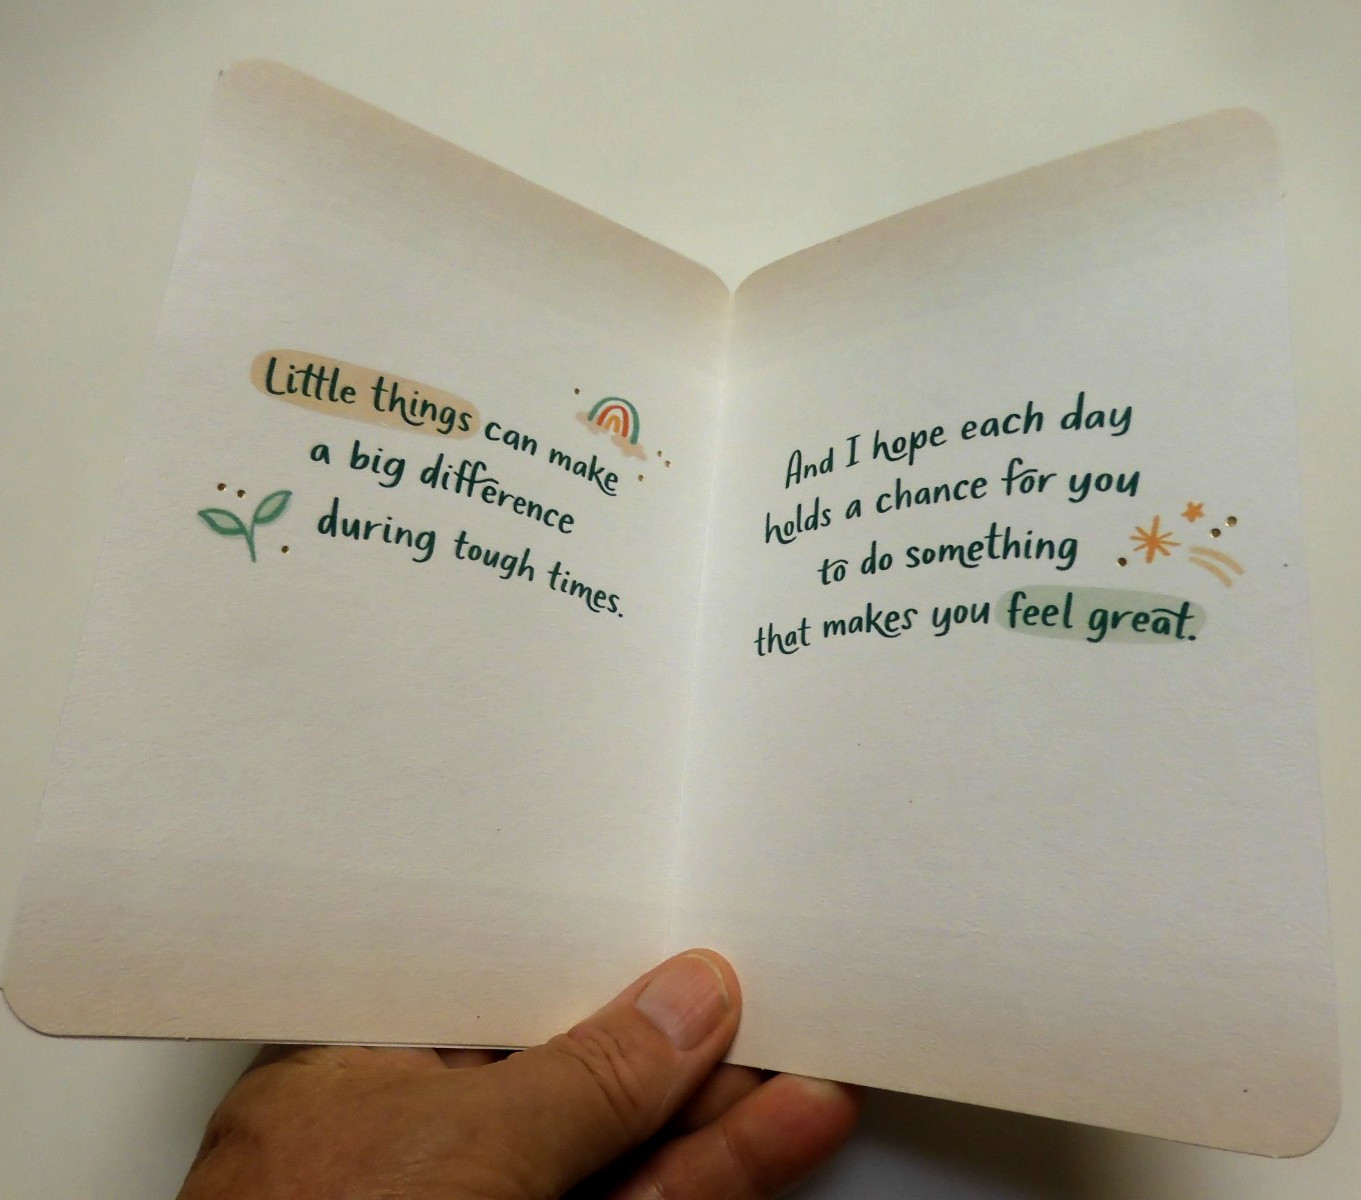 Little things can make
a big difference
during tough times.
And I hope each day
holds a chance for you
to do something
that makes you feel great.